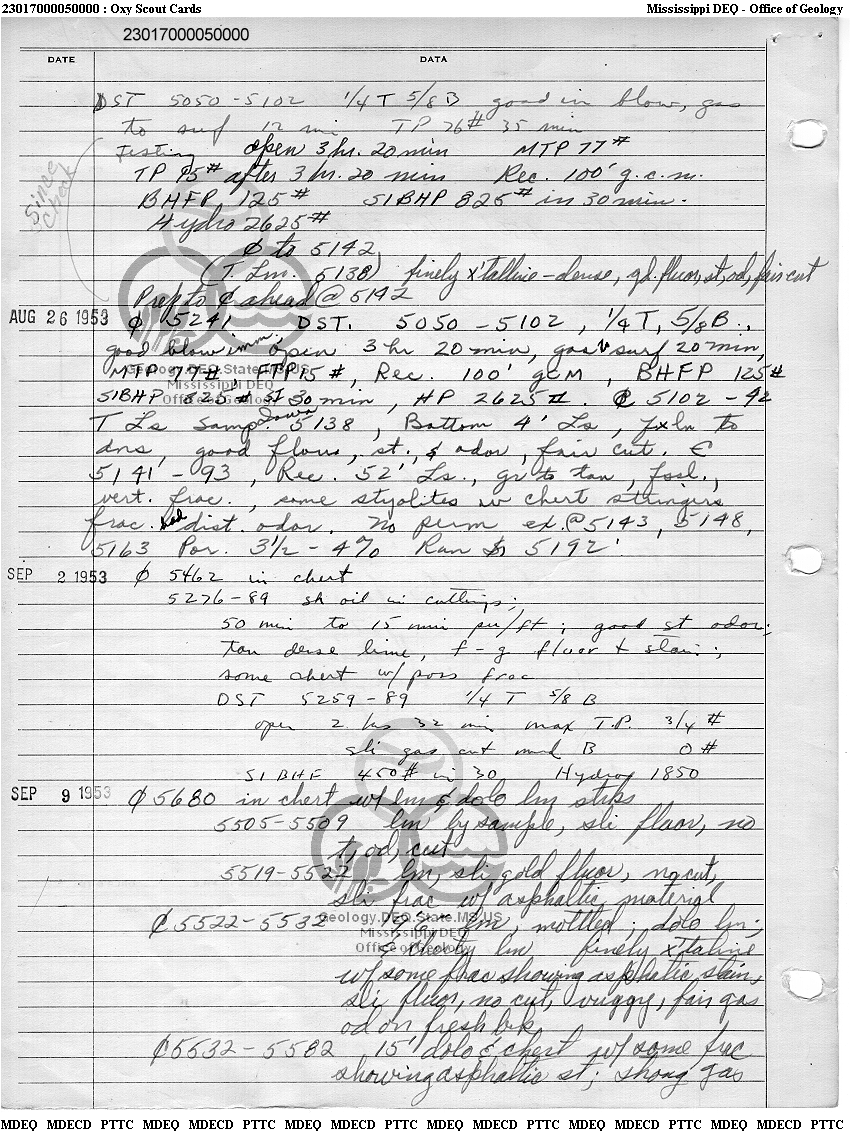 23017000050000 : Oxy Scout Cards Mississippi DEQ - Office of Geology
23017000050000
DATE DATA
DST 5050-5102 1/4 T 5/8 B good in blow, gas
to surf 12 min TP 76# 35 min
Testing open 3 hr. 20 min MTP 77#
TP 15# after 3 hr. 20 min Rec. 100' g.c.m.
BHFP 125# SIBHP 825# in 30 min.
Hydro 2625#
Since Check
Ø to 5142
(T. Lm. 5138) finely x'talline-dense, gd. fluor, st, od, fair cut
Prep to ₵ ahead @ 5142
AUG 26 1953 Ø 5241 DST. 5050-5102, 1/4 T, 5/8 B.,
good blow imm. open 3 hr 20 min, gas surf 20 min,
MTP 77#, FTP 15#, Rec. 100' GCM, BHFP 125#
SIBHP 825# SI 30 min, HP 2625#. ₵ 5102-42
T Ls Samp. 5138, Bottom 4' Ls, fxln to
dns, good flour, st., & odor, fair cut. ₵
5141'-93, Rec. 52' Ls., gr to tan, fssl.,
vert. frac., some styolites w chert stringers
frac. had dist. odor. No perm ex. @ 5143, 5148,
5163 Por. 3 1/2 - 4% Ran 5192'
SEP 2 1953 Ø 5462 in chert
5276-89 sh oil in cuttings;
50 min to 15 min per/ft; good st odor;
tan dense lime, f-g fluor & stain;
some chert w/ poss frac
DST 5259-89 1/4 T 5/8 B
open 2 hrs 32 min max T.P. 3/4 #
sli gas cut mud B 0#
SI BHF 450# in 30 Hydro 1850
SEP 9 1953 Ø 5680 in chert w/ lm & dolo lm stks
5505-5509 lm by sample, sli fluor, no
t, od, cut
5519-5522 lm, sli gold fluor, no cut,
sli frac w/ asphaltic material
₵ 5522-5532 lm, mottled; dolo lm;
& cherty lm finely x'taline
w/ some frac showing asphatic stain,
sli fluor, no cut, vuggy, fair gas
od on fresh brk
₵ 5532-5582 15' dolo & chert w/ some frac
showing asphaltic st; strong gas
Geology.DEQ.State.MS.US
Mississippi DEQ
Office of Geology
Geology.DEQ.State.MS.US
Mississippi DEQ
Office of Geology
MDEQ MDECD PTTC MDEQ MDECD PTTC MDEQ MDECD PTTC MDEQ MDECD PTTC MDEQ MDECD PTTC MDEQ MDECD PTTC